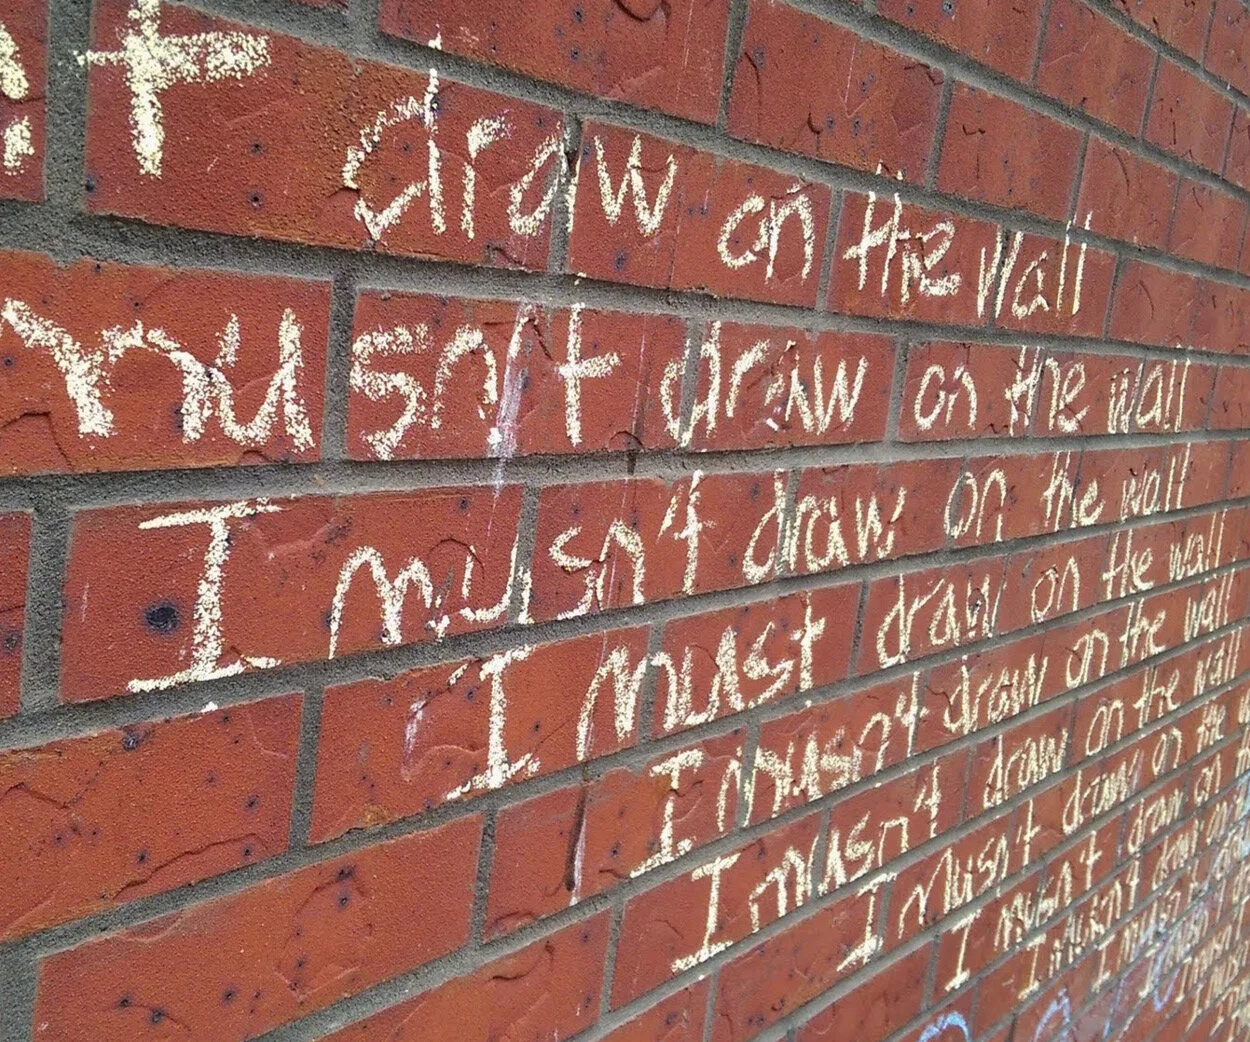 t draw on the wall
musn't draw on the wall
I musn't draw on the wall
I must draw on the wall
I musn't draw on the wall
I musn't draw on the wall
I musn't draw on the
I musn't draw on
I musn't draw on